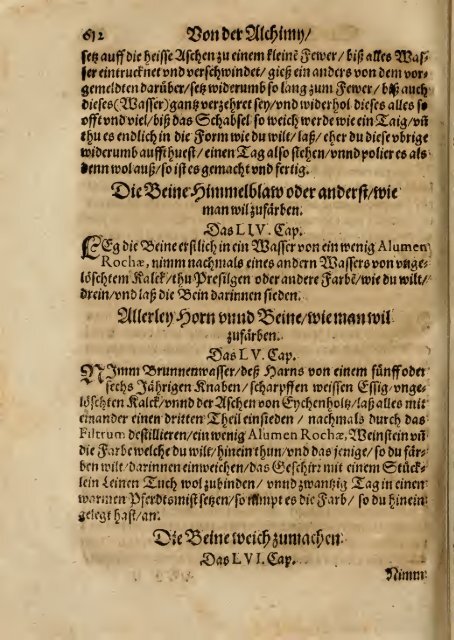 612 Von der Alchimy/
setz auff die heisse Aschen zu einem kleinē Fewer/ biß alles Was-
ser eintrucknet vnd verschwindet/ gieß ein anders von dem vor-
gemeldten darüber/ setz widerumb so lang zum Fewer/ biß auch
dieses (Wasser) gantz verzehret sey/ vnd widerhol dieses alles so
offt vnd viel/ biß das Schabsel so weich werde wie ein Taig/ vñ
thu es endlich in die Form wie du wilt/ laß/ eher du diese vbrige
widerumb auffthuest/ einen Tag also stehen/ vnnd polier es als
denn wol auß/ so ist es gemacht vnd fertig.
Die Beine Himmelblaw oder anderst/ wie
man wil zufärben.
Das LIV. Cap.
LEg die Beine erstlich in ein Wasser von ein wenig Alumen
Rochæ, nimm nachmals eines andern Wassers von vnge-
löschtem Kalck/ thu Presilgen oder andere Farbē/ wie du wilt/
drein/ vnd laß die Bein darinnen sieden.
Allerley Horn vnnd Beine/ wie man wil
zufärben.
Das LV. Cap.
NImm Brunnenwasser/ deß Harns von einem fünff oder
sechs Jährigen Knaben/ scharpffen weissen Essig/ vnge-
löschten Kalck/ vnnd der Aschen von Eychenholtz/ laß alles mit
einander einen dritten Theil einsieden/ nachmals durch das
Filtrum destillieren/ ein wenig Alumen Rochæ, Weinstein vñ
die Farbe welche du wilt/ hinein thun/ vnd das jenige/ so du fär-
ben wilt/ darinnen einweichen/ das Geschirr mit einem Stück-
lein Leinen Tuch wol zubinden/ vnnd zwantzig Tag in einen
warmen Pferdtsmist setzen/ so nimpt es die Farb/ so du hinein
gelegt hast/ an.
Die Beine weich zumachen
Das LVI. Cap.
Nimm